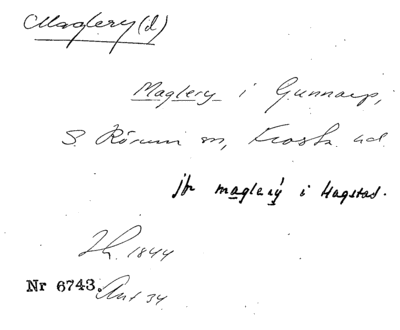 Maglery(d)
Maglery i Gunnarp,
S. Rörum sn, Frosta hd
jfr maglerÿ i Hagstad.
Th. 1844
Nr 6743. Ant 34